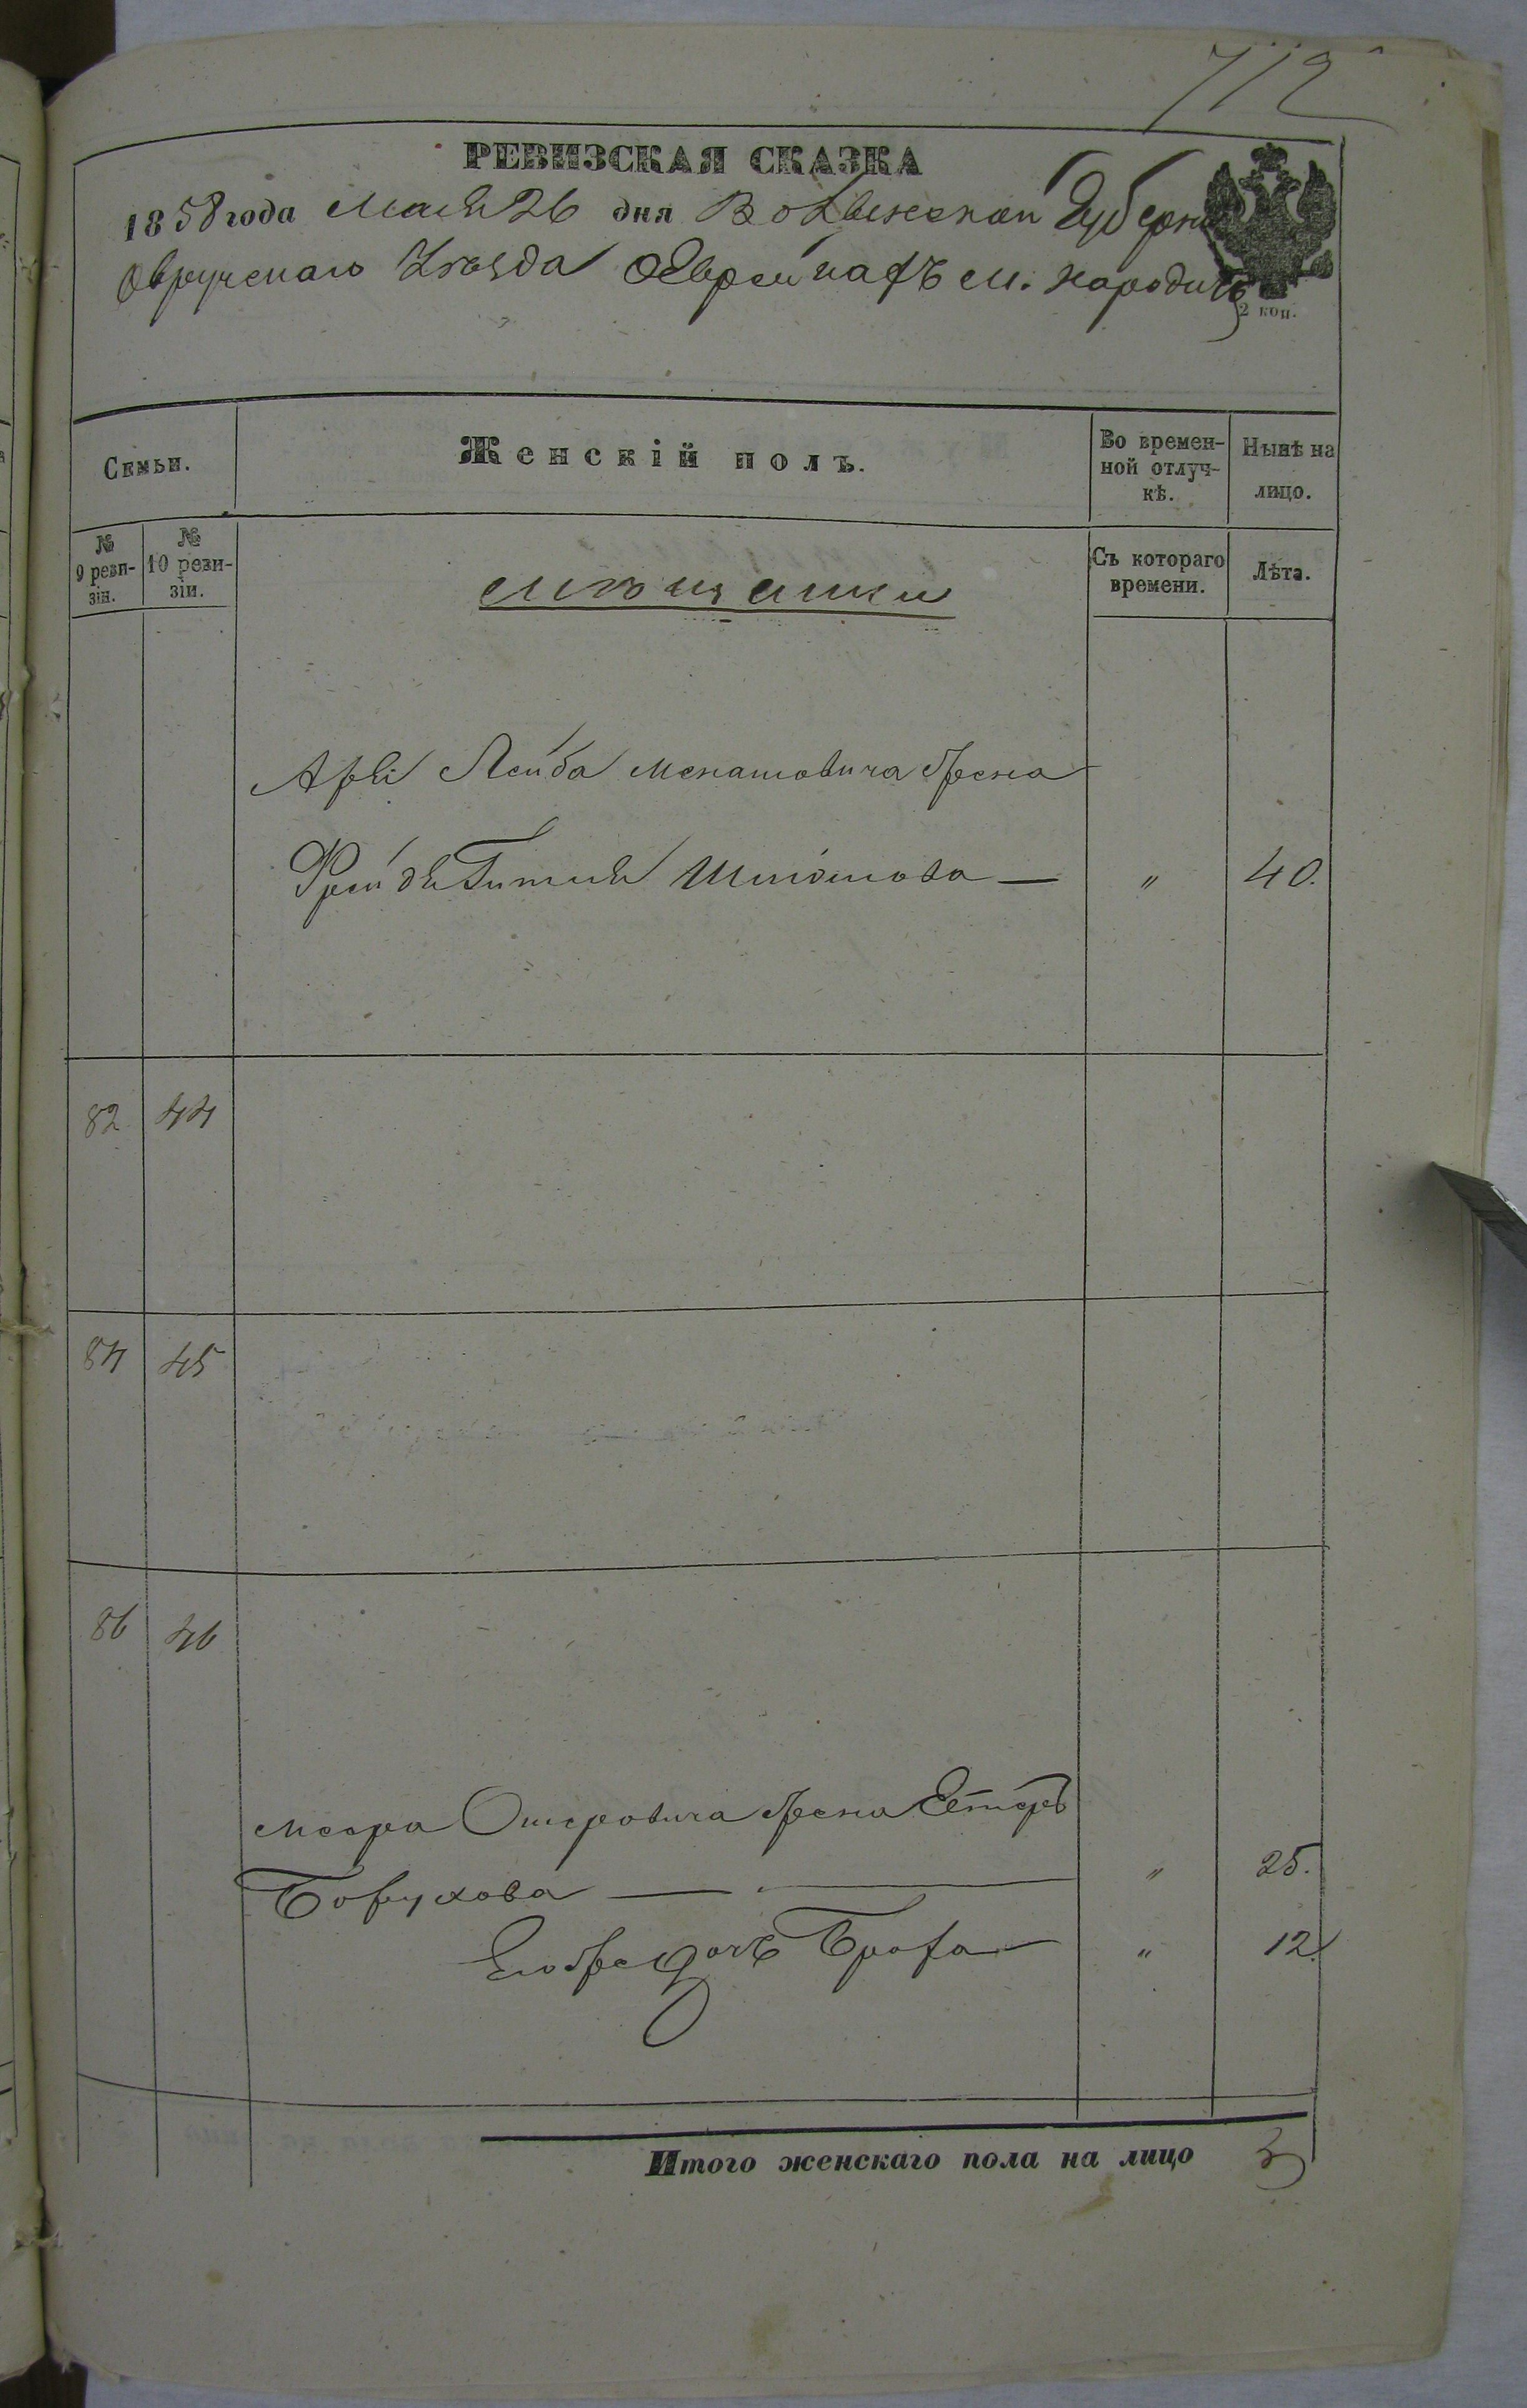 712
РЕВИЗСКАЯ СКАЗКА
1858 года Мая 26 дня Волынской Губерніи
Овручскаго Уѣзда О Евреинахъ м. Народичъ
2 коп.
Семьи.
Женскій полъ.
Во времен-
ной отлуч-
кѣ.
Нынѣ на
лицо.
№
9 реви-
зіи.
№
10 реви-
зіи.
мѣщанки
Съ котораго
времени.
Лѣта.
Арій Лейба Менашовича Жена
Фрейдя Гитля Шліомова — " 40.
82 44
84 45
86 46
Меера Ошеровича Жена Естеръ
Борухова — — " 25.
Его же дочь Броха — " 12
Итого женскаго пола на лицо 3